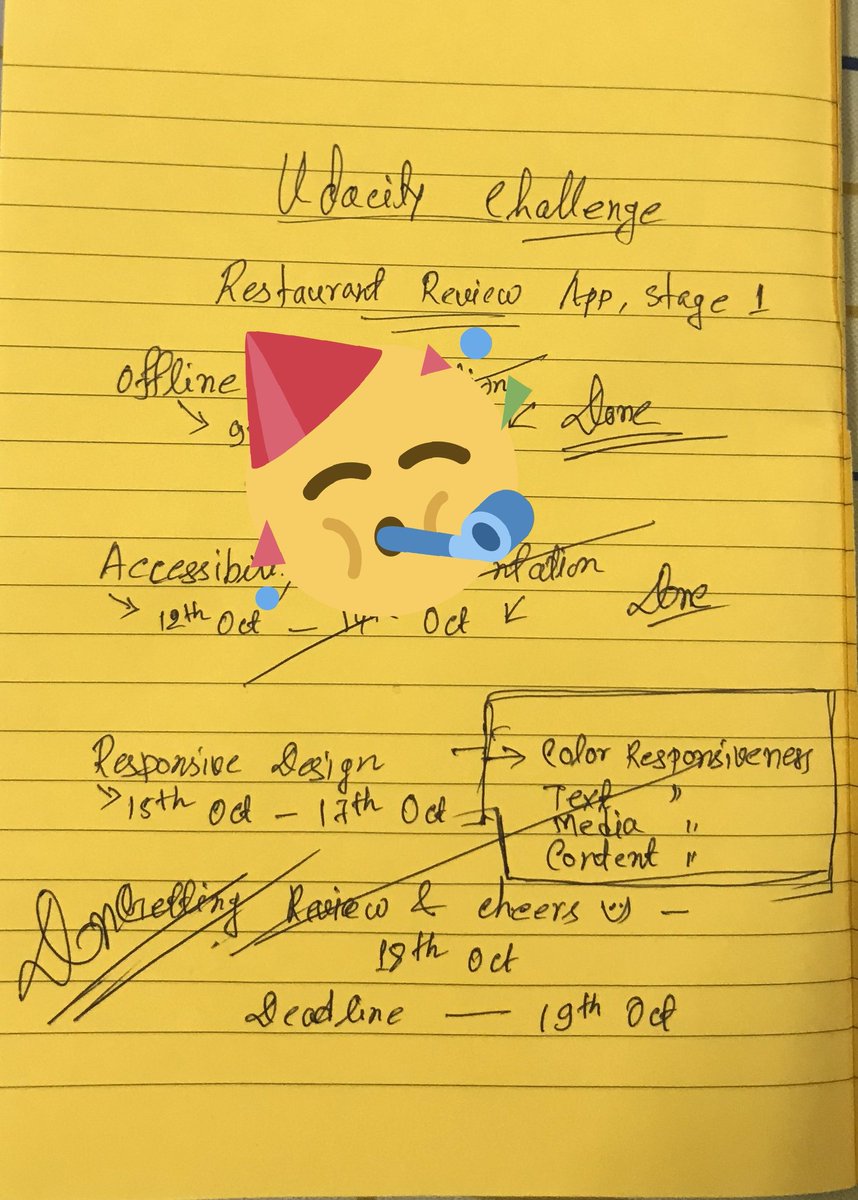 Udacity Challenge
Restaurant Review App, Stage 1
Offline
Done
Accessibili ntation
12th Oct – 14 Oct
Done
Responsive Design → Color Responsiveness
15th Oct – 17th Oct
Text "
Media "
Content "
Done
Getting Review & cheers –
18th Oct
Deadline — 19th Oct